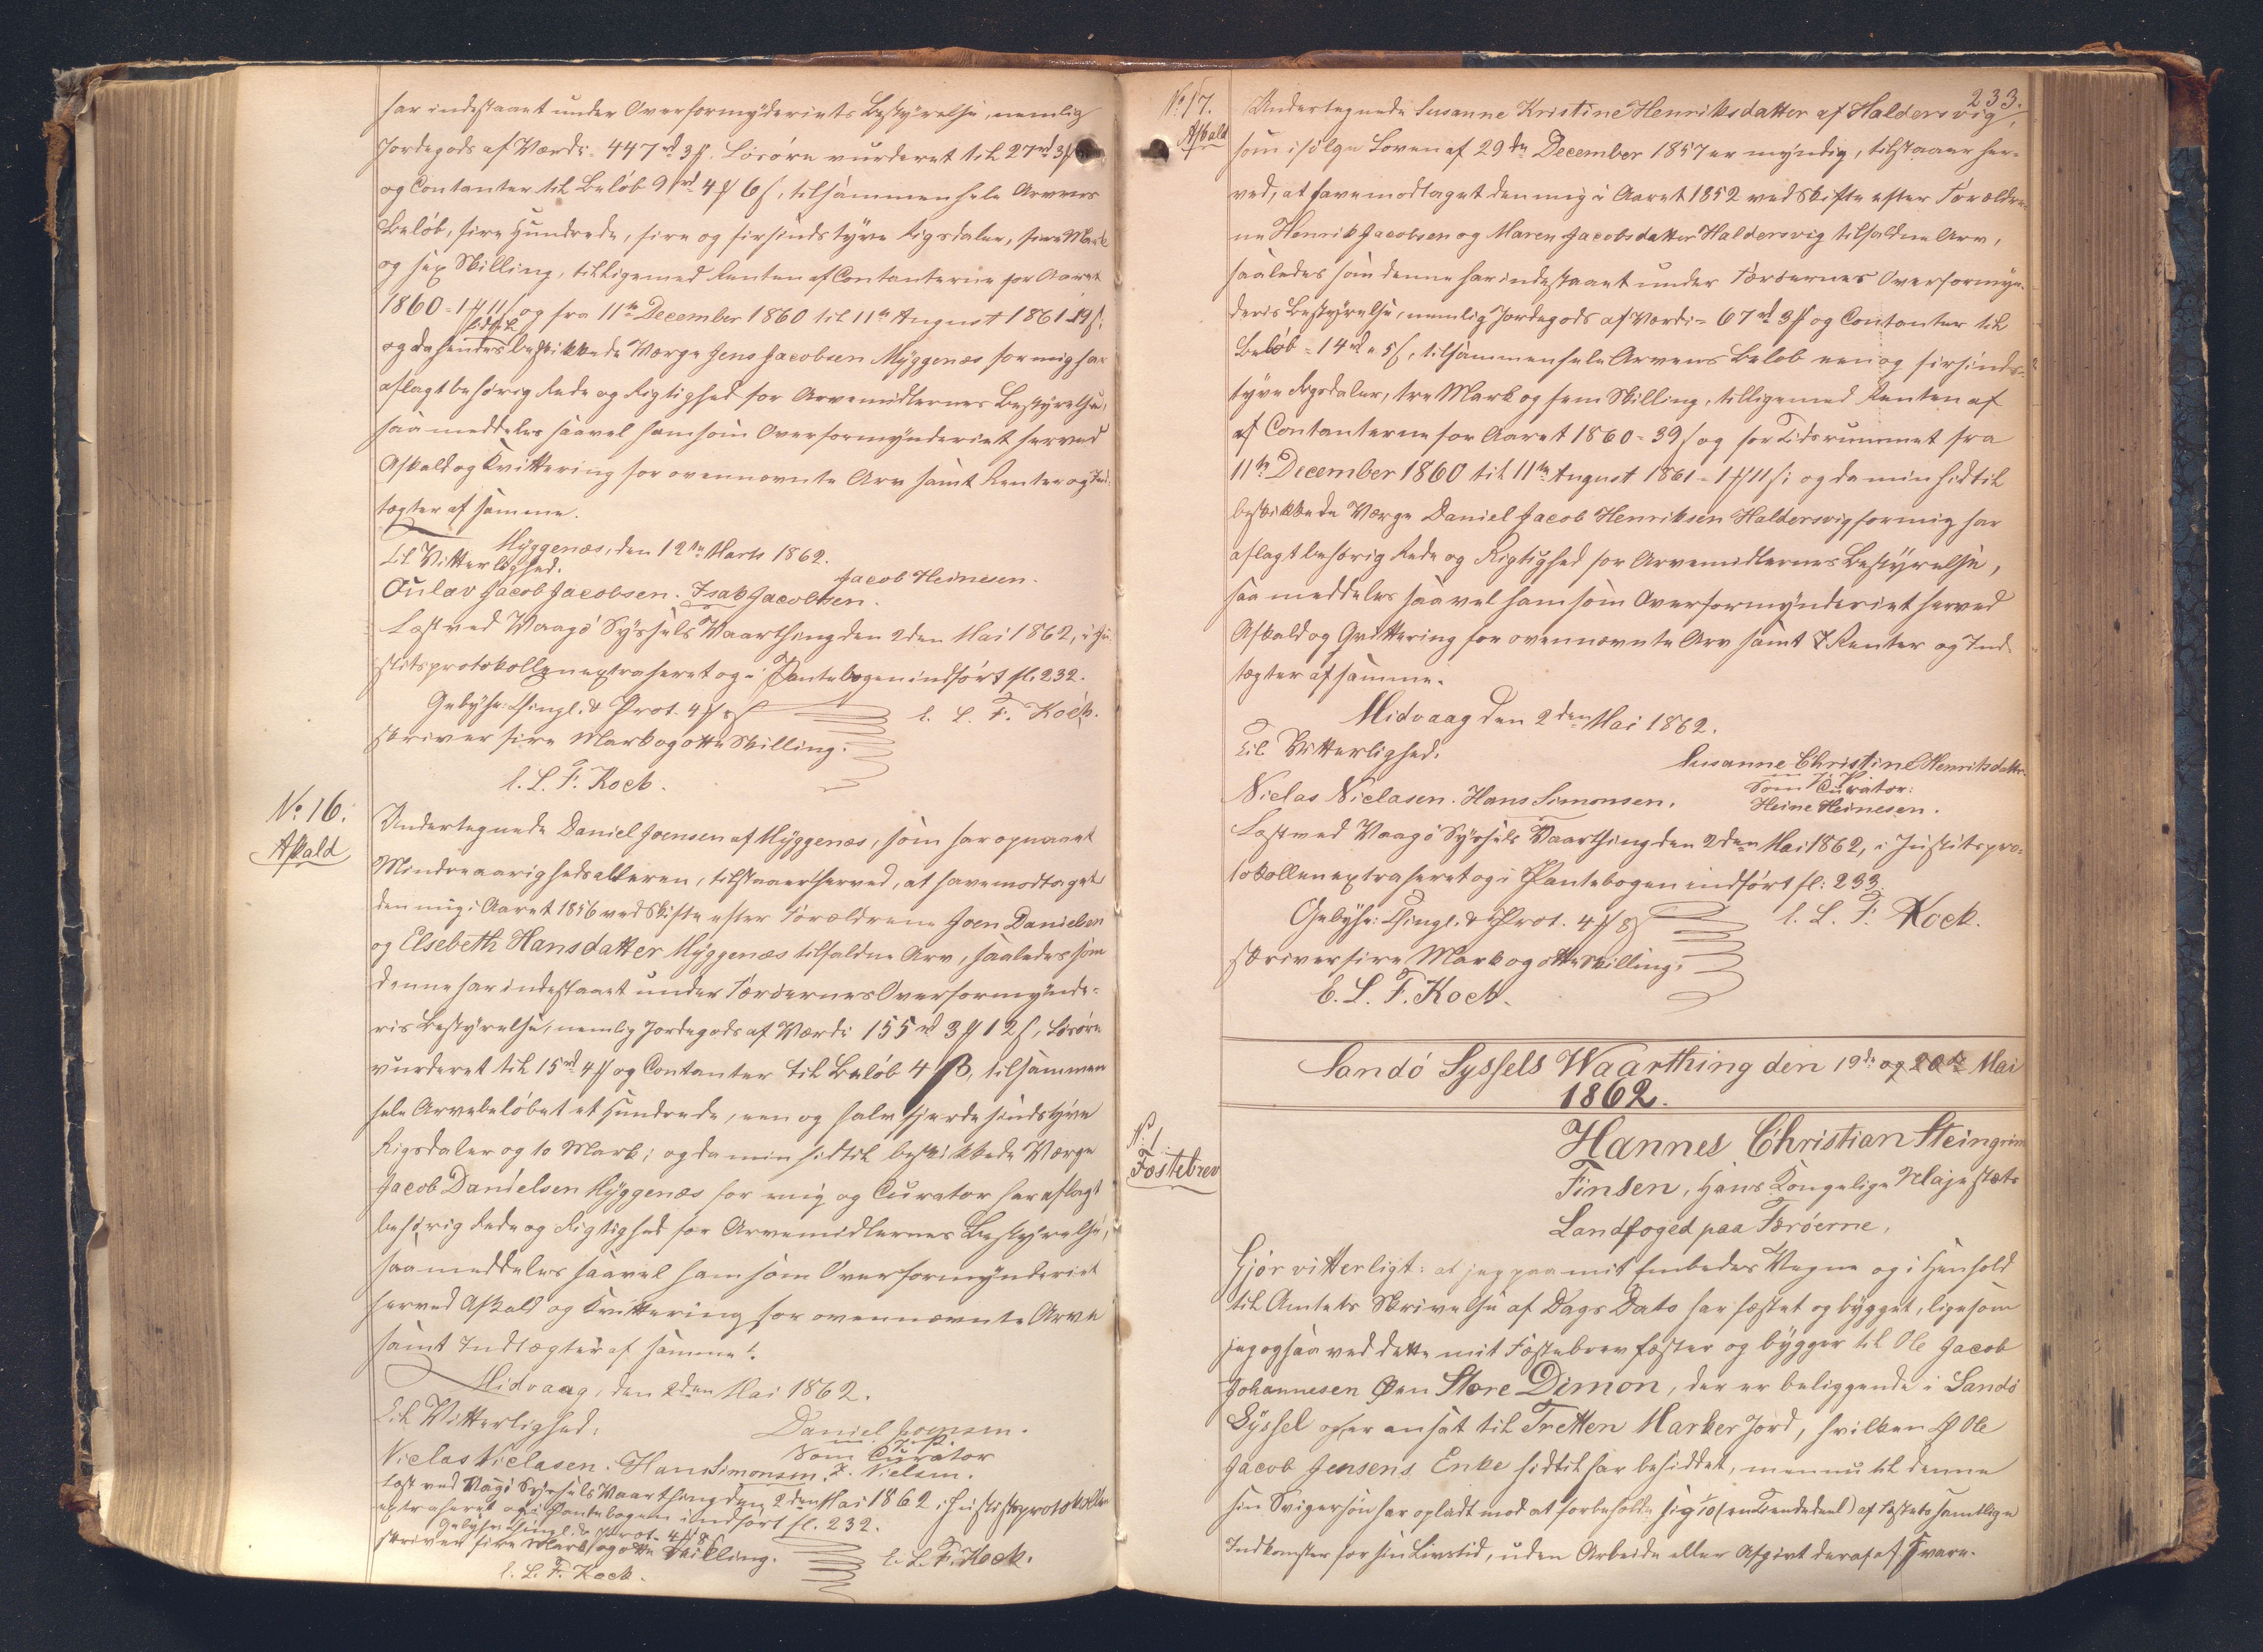 har indestaaet under Overformynderiets Bestyrelse, nemlig
Jordegods af Værdi = 447 rd 3 ℔. Løsøre vurderet til 27 rd 3 ℔
og Contanter til Beløb 9 rd 4 ℔ 6 ß, tilsammen hele Arvens
Beløb, fire Hundrede, fire og firsindstyve Rigsdaler, fire Mark
og sex Skilling, tilligemed Renten af Contanterne for Aaret
1860 = 1 ℔ 11 ß og fra 11te December 1860 til 11te August 1861 19 ß;
hidtil
og da hendes beskikkede Værge Jens Jacobsen Myggenæs for mig har
aflagt behørig Rede og Rigtighed for Arvemidlernes Bestyrelse,
saa meddeles saavel ham som Overformynderiet herved
Afkald og Kvittering for ovennævnte Arv samt Renter og Ind-
tægter af samme.
Myggenæs, den 12te Marts 1862.
Til Vitterlighed.
Jacob Heinesen.
Oulav Jacob Jacobsen. Isak Jacobsen.
Læst ved Waagø Syssels Vaarthing den 2den Mai 1862, i Ju-
stitsprotokollen extraheret og i Pantebogen indført fl. 232.
Gebyhr: Thingl. & Prot. 4 ℔ 8 ß
E. L. F. Koch.
skriver fire Mark og otte Skilling.
E. L. F. Koch.
No 16.
Afkald
Undertegnede Daniel Joensen af Myggenæs, som har opnaaet
Mindreaarighedsalderen, tilstaaer herved, at have modtaget
den mig i Aaret 1856 ved Skifte efter Forældrene Joen Danielsen
og Elsebeth Hansdatter Myggenæs tilfaldne Arv, saaledes som
denne har indestaaet under Færøernes Overformynde-
ris Bestyrelse, nemlig Jordegods af Værdi 155 rd 3 ℔ 12 ß, Løsøre
vurderet til 15 rd 4 ℔ og Contanter til Beløb 4 ß, tilsammen
hele Arvebeløbet et Hundrede, een og halvfjerdesindstyve
Rigsdaler og to Mark; og da min hidtil beskikkede Værge
Jacob Danielsen Myggenæs for mig og Curator har aflagt
behørig Rede og Rigtighed for Arvemidlernes Bestyrelse,
saa meddeles saavel ham som Overformynderiet
herved Afkald og Kvittering for ovennævnte Arv
samt Indtægter af samme.
Midvaag, den 2den Mai 1862.
Til Vitterlighed:
Daniel Joensen.
m. f. P.
Som Curator
Niclas Niclasen. Hans Simonsen. Z. Nielsen.
Læst ved Vaagø Syssels Vaarthing den 2den Mai 1862, i Justitsprotokollen
extraheret og i Pantebogen indført fl. 232.
Gebyhr: Thingl. & Prot. 4 ℔ 8 ß
skriver fire Mark og otte Skilling.
E. L. F. Koch.
E. L. F. Koch.
233.
No 17.
Afkald
Undertegnede Susanne Kristine Henriksdatter af Haldersvig,
som ifølge Loven af 29de December 1857 er myndig, tilstaaer her-
ved, at have modtaget den mig i Aaret 1852 ved Skifte efter Forældre-
ne Henrik Jacobsen og Maren Jacobsdatter Haldersvig tilfaldne Arv,
saaledes som denne har indestaaet under Færøernes Overformyn-
deris Bestyrelse, nemlig Jordegods af Værdi = 67 rd 3 ℔ og Contanter til
Beløb = 14 rd " 5 ß, tilsammen hele Arvens Beløb een og firsinds-
tyve Rigsdaler, tre Mark og fem Skilling, tilligemed Renten af
af Contanterne for Aaret 1860 = 39 ß og for Tidsrummet fra
11te December 1860 til 11te August 1861 = 1 ℔ 11 ß; og da min hidtil
beskikkede Værge Daniel Jacob Henriksen Haldersvig for mig har
aflagt behørig Rede og Rigtighed for Arvemidlernes Bestyrelse,
saa meddeles saavel ham som Overformynderiet herved
Afkald og Qvittering for ovennævnte Arv samt Renter og Ind-
tægter af samme.
Midvaag den 2den Mai 1862.
Til Vitterlighed.
Susanne Christine Henriksdatter
m. f. P.
Som Curator:
Niclas Niclasen. Hans Simonsen.
Heine Heinesen.
Læst ved Vaagø Syssels Vaarthing den 2den Mai 1862, i Justitspro-
tokollen extraheret og i Pantebogen indført fl: 233.
Gebyhr: Thingl. & Prot. 4 ℔ 8 ß
E. L. F. Koch.
skriver fire Mark og otte Skilling.
E. L. F. Koch.
Sandø Syssels Waarthing den 19de og 20de Mai
1862.
No 1.
Fæstebrev
Hannes Christian Steingrim
Finsen, Hans Kongelige Majestæts
Landfoged paa Færøerne,
Gjør vitterligt: at jeg paa mit Embedes Vegne og i Henhold
til Amtets Skrivelse af Dags Dato har fæstet og bygget, ligesom
jeg ogsaa ved dette mit Fæstebrev fæster og bygger til Ole Jacob
Johannesen Øen Store Dimon, der er beliggende i Sandø
Syssel og er ansat til Tretten Marker Jord, hvilken Ø Ole
Jacob Jensens Enke hidtil har besiddet, men nu til denne
sin Svigersøn har opladt mod at forbeholde sig 1/10 (en Tiendedeel) af Fæstets samtlige
Indkomster for sin Livstid, uden Arbeide eller Afgivt deraf at svare.